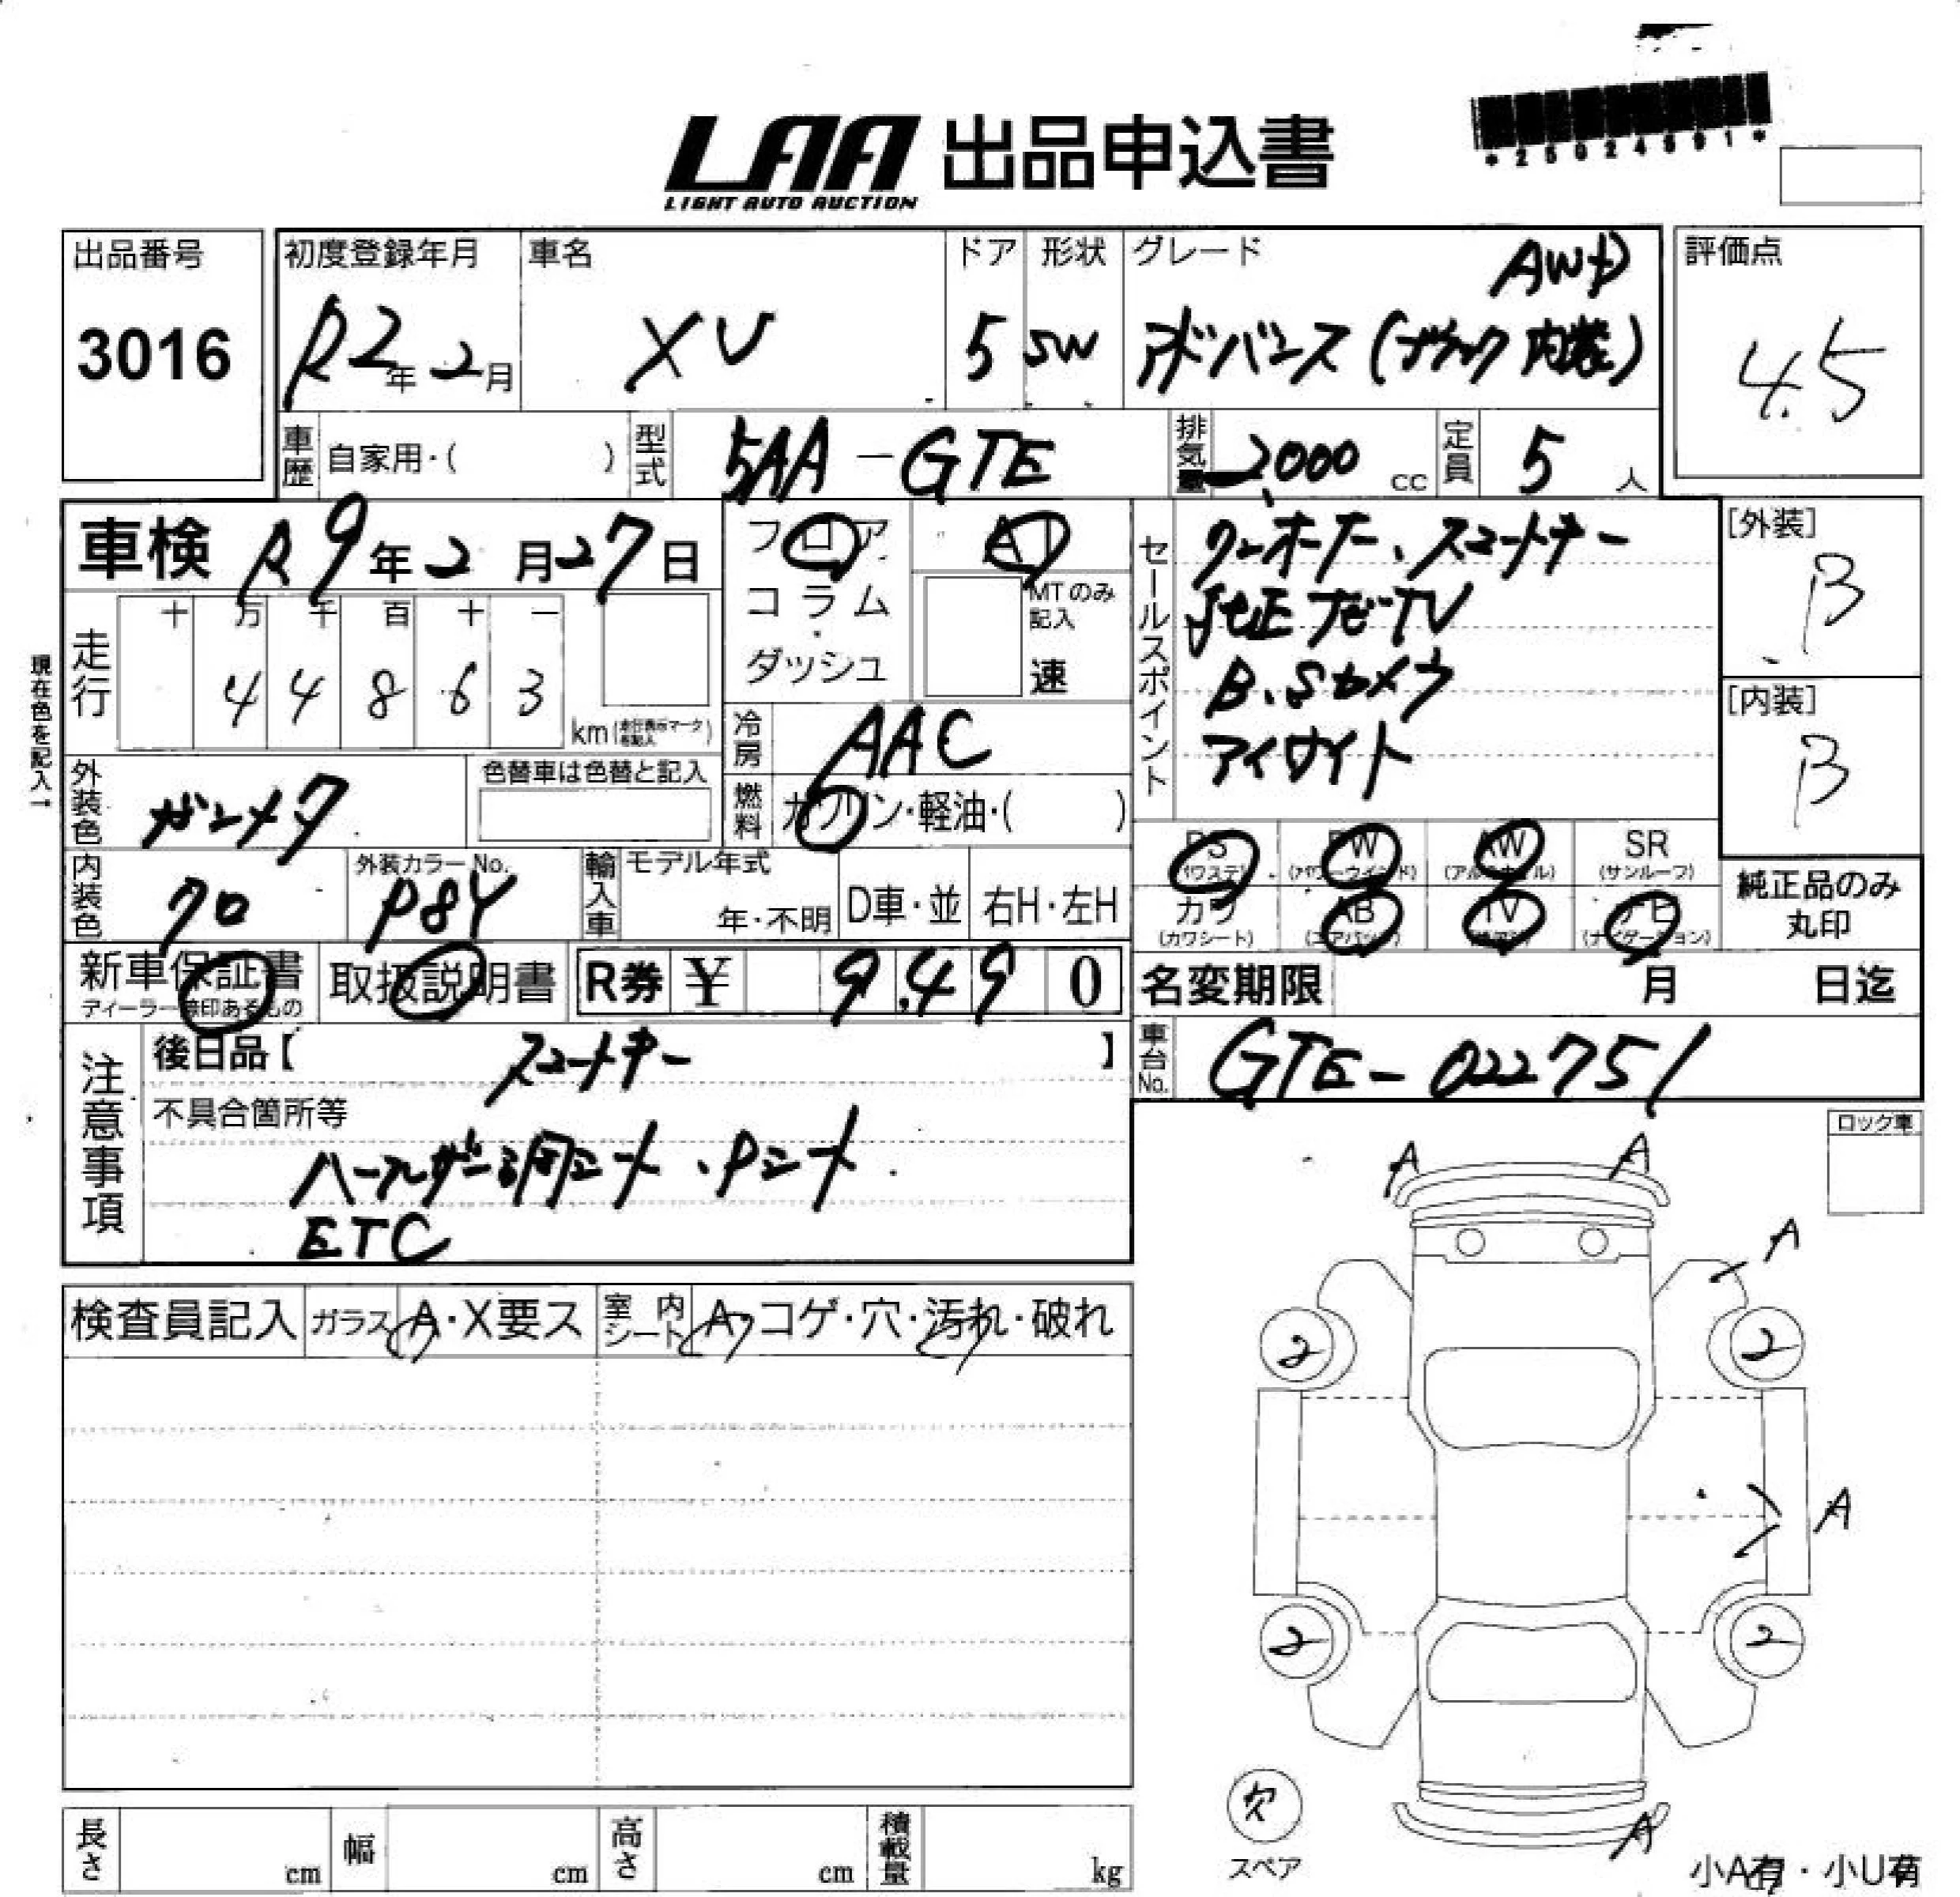 *25024591*
LAA 出品申込書
LIGHT AUTO AUCTION
出品番号
3016
初度登録年月
R2年2月
車名
XV
ドア
5
形状
SW
グレード
AWD
アドバンス(ブラック内装)
評価点
4.5
車歴 自家用・( )
型式 5AA-GTE
排気量 2000 cc
定員 5 人
車検 R9年2月27日
フロア
コラム
・
ダッシュ
AT
MTのみ
記入
速
セールスポイント
ワンオーナー、スマートキー
純正ナビTV
B.Sカメラ
アイサイト
[外装]
B
[内装]
B
現在色を記入→
走行 十 万 千 百 十 一
4 4 8 6 3
km
冷房 AAC
燃料 ガソリン・軽油・( )
外装色 ガンメタ
色替車は色替と記入
内装色 クロ
外装カラーNo.
P8Y
輸入車 モデル年式
年・不明
D車・並
右H・左H
PS (パワステ)
PW (パワーウインド)
AW (アルミホイル)
SR (サンルーフ)
カワ (カワシート)
AB (エアバック)
TV
ナビ (ナビゲーション)
純正品のみ
丸印
新車保証書
取扱説明書
R券 ¥ 9,490
名変期限 月 日迄
車台No. GTE-022751
注意事項
後日品【 スマートキー 】
不具合箇所等
ハーフレザー調シート、Pシート
ETC
ロック車
検査員記入
ガラス A・X要ス
室内シート A・コゲ・穴・汚れ・破れ
A
A
A
2
2
A
2
2
欠
スペア
A
小A有・小U有
長さ cm
幅 cm
高さ cm
積載量 kg